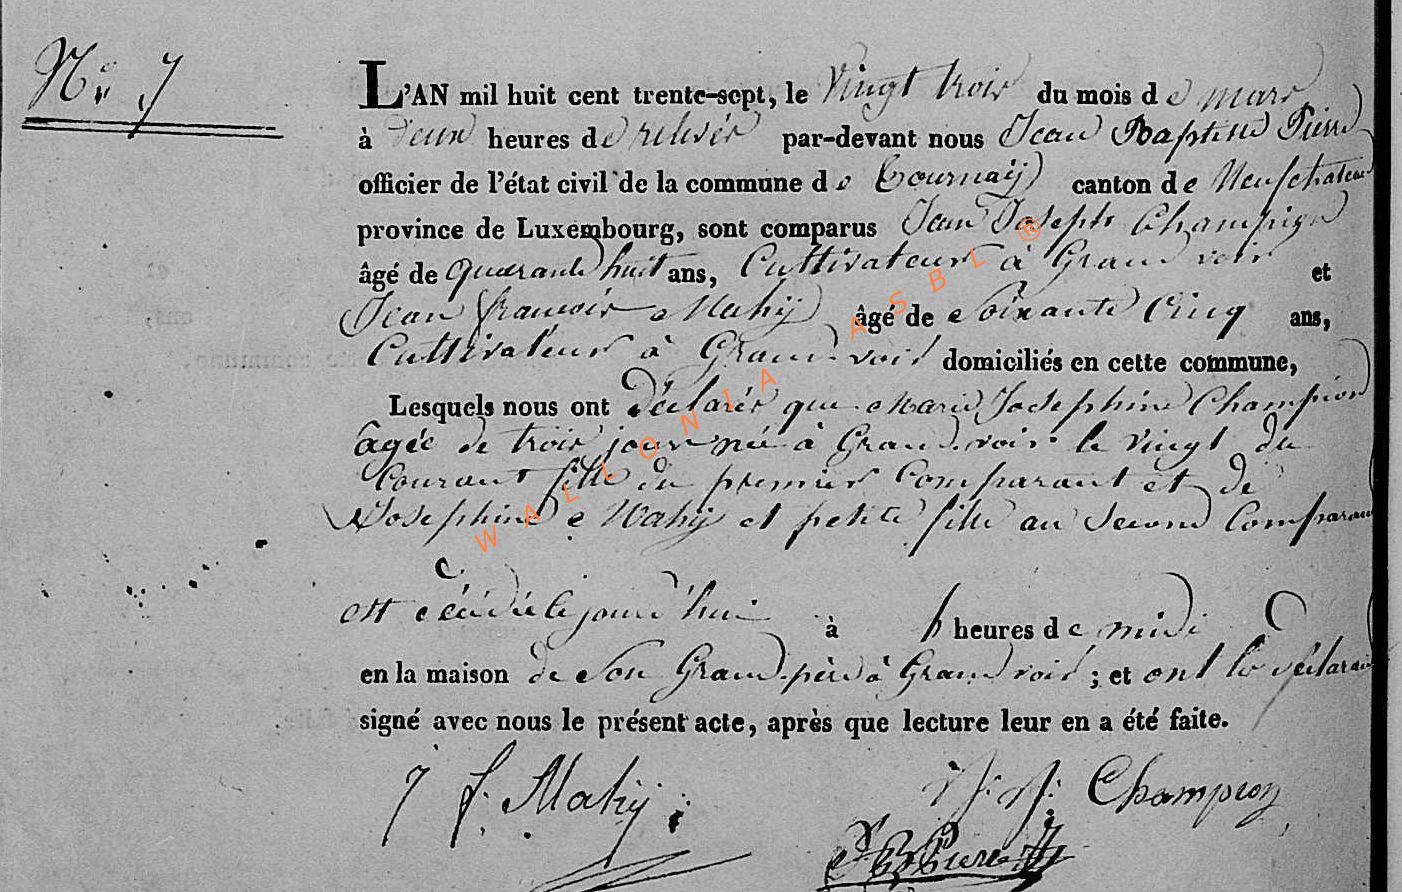 N° 7
L'AN mil huit cent trente-sept, le Vingt trois du mois de mars
à deux heures de relevér par-devant nous Jean Baptiste Pierre
officier de l'état civil de la commune de Tournaÿ canton de Neufchateau
province de Luxembourg, sont comparus Jean Joseph Champion
âgé de quarante huit ans, Cultivateur à Grand voir et
Jean francois Mahÿ âgé de Soixante Cinq ans,
Cultivateur à Grand-voir domiciliés en cette commune,
Lesquels nous ont déclarér que Marie Josephine Champion
âgée de trois jour née à Grand-voir le vingt du
Courant fille du premier Comparant et de
Josephine Mahÿ et petite fille au Second Comparant
est décédée le jourd'hui à heures de midi
en la maison de Son Grand-père à Grand voir ; et ont le déclarant
signé avec nous le présent acte, après que lecture leur en a été faite.
J. f. Mahÿ
J. J. Champion
J B Pierre
WALLONIA ASBL ®